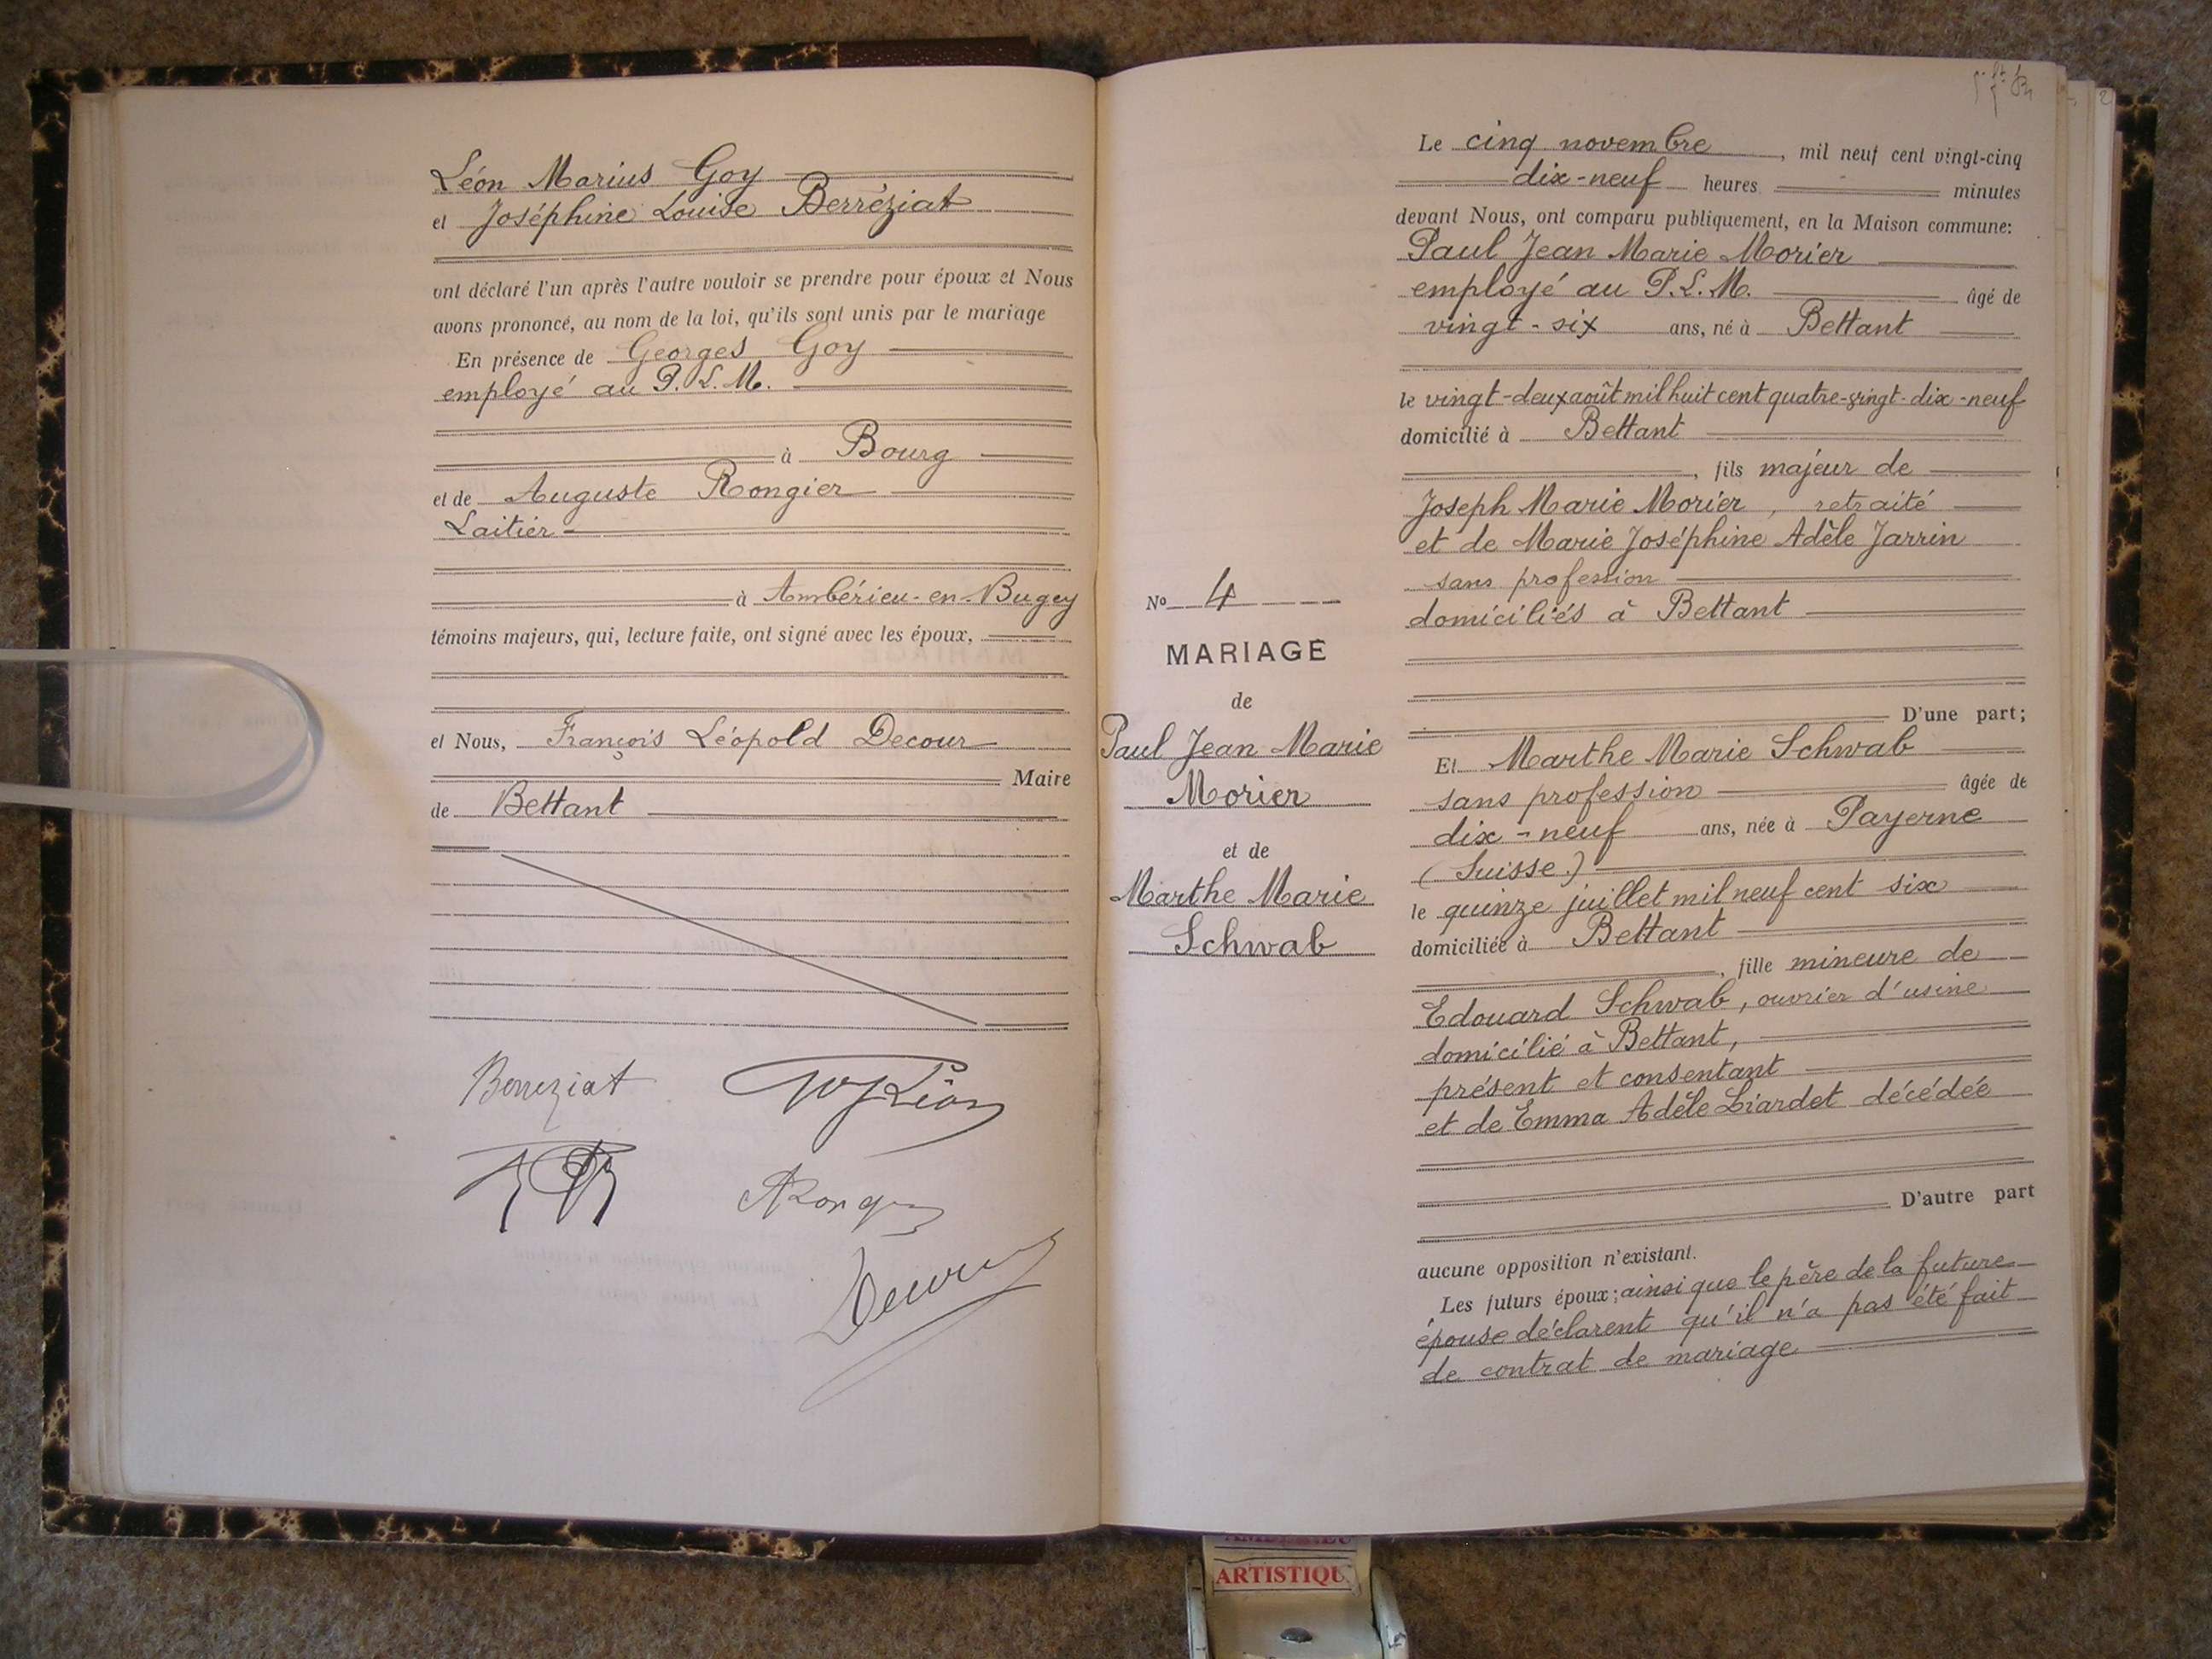 Léon Marius Goy
et Joséphine Louise Berréziat
ont déclaré l'un après l'autre vouloir se prendre pour époux et Nous
avons prononcé, au nom de la loi, qu'ils sont unis par le mariage
En présence de Georges Goy
employé au P.L.M.
à Bourg
et de Auguste Rongier
Laitier
à Ambérieu-en-Bugey
témoins majeurs, qui, lecture faite, ont signé avec les époux,
et Nous, François Léopold Decour
Maire
de Bettant
Berreziat Goy Léon
ARongier
Decour
Le cinq novembre, mil neuf cent vingt-cinq
dix-neuf heures minutes
devant Nous, ont comparu publiquement, en la Maison commune:
Paul Jean Marie Morier
employé au P.L.M. âgé de
vingt-six ans, né à Bettant
le vingt-deux août mil huit cent quatre-vingt-dix-neuf
domicilié à Bettant
, fils majeur de
Joseph Marie Morier, retraité
et de Marie Joséphine Adèle Jarrin
sans profession
domiciliés à Bettant
D'une part;
No 4
MARIAGE
de
Paul Jean Marie
Morier
et de
Marthe Marie
Schwab
Et Marthe Marie Schwab
sans profession âgée de
dix-neuf ans, née à Payerne
(Suisse)
le quinze juillet mil neuf cent six
domiciliée à Bettant
, fille mineure de
Edouard Schwab, ouvrier d'usine
domicilié à Bettant,
présent et consentant
et de Emma Adèle Liardet décédée
D'autre part
aucune opposition n'existant.
Les futurs époux; ainsi que le père de la future
épouse déclarent qu'il n'a pas été fait
de contrat de mariage
ARTISTIQU